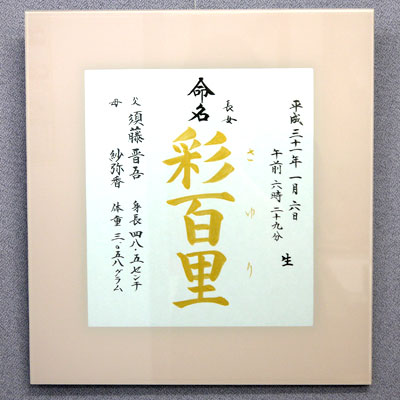 平成三十一年一月六日
午前六時二十九分
生
長女
さゆり
命名
彩百里
父 須藤晋吾
母 紗弥香
身長 四八・五センチ
体重 三〇五八グラム